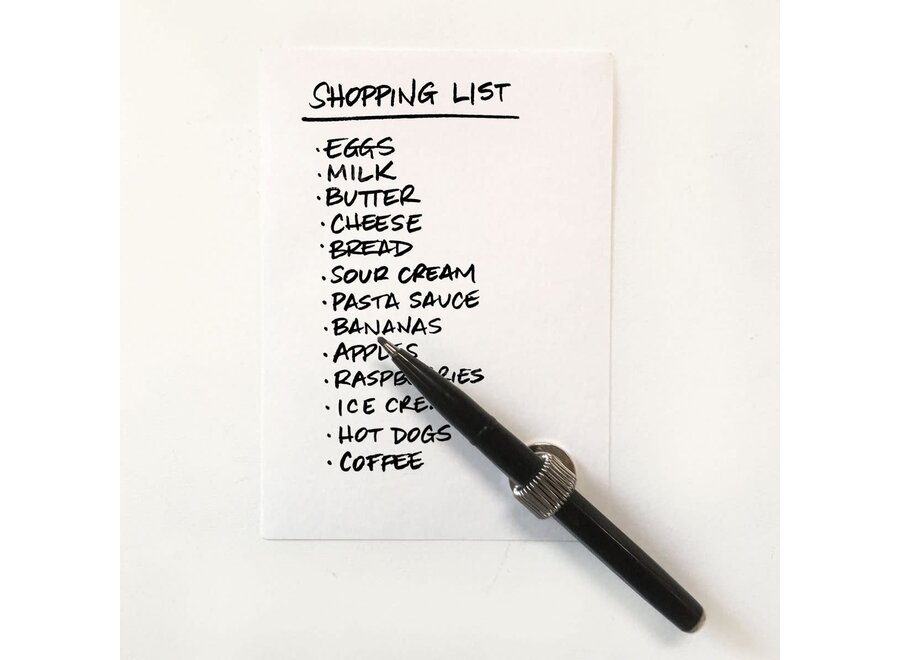 SHOPPING LIST
· EGGS
· MILK
· BUTTER
· CHEESE
· BREAD
· SOUR CREAM
· PASTA SAUCE
· BANANAS
· APPLES
· RASPBERRIES
· ICE
· HOT DOGS
· COFFEE